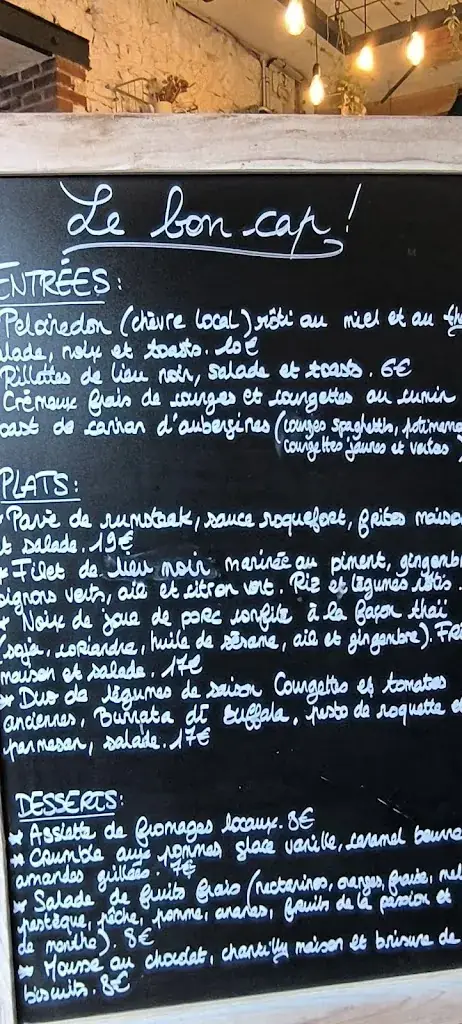 Le bon cap !
ENTRÉES :
Pelardon (chèvre local) rôti au miel et au
salade, noix et toasts. 10€
Rillettes de lieu noir, salade et toasts. 6€
Crémeux frais de courges et courgettes au cumin
toast de caviar d'aubergines (courges spaghettis, potimarron
courgettes jaunes et vertes)
PLATS :
* Pavé de rumsteak, sauce roquefort, frites maison
et salade. 19€
* Filet de lieu noir, mariné au piment, gingembre
oignons verts, ail et citron vert. Riz et légumes rôtis.
* Noix de joue de porc confite à la façon thaï
(soja, coriandre, huile de sésame, ail et gingembre). Fri
maison et salade. 17€
* Duo de légumes de saison Courgettes et tomates
anciennes, Burrata di Buffala, pesto de roquette e
parmesan, salade. 17€
DESSERTS :
* Assiette de fromages locaux. 8€
* Crumble aux pommes glace vanille, caramel beurre
amandes grillées. 7€
* Salade de fruits frais (nectarines, oranges, fraise, mel
pastèque, pêche, pomme, ananas, fruits de la passion et
de menthe). 8€
* Mousse au chocolat, chantilly maison et brisure de
biscuits. 8€